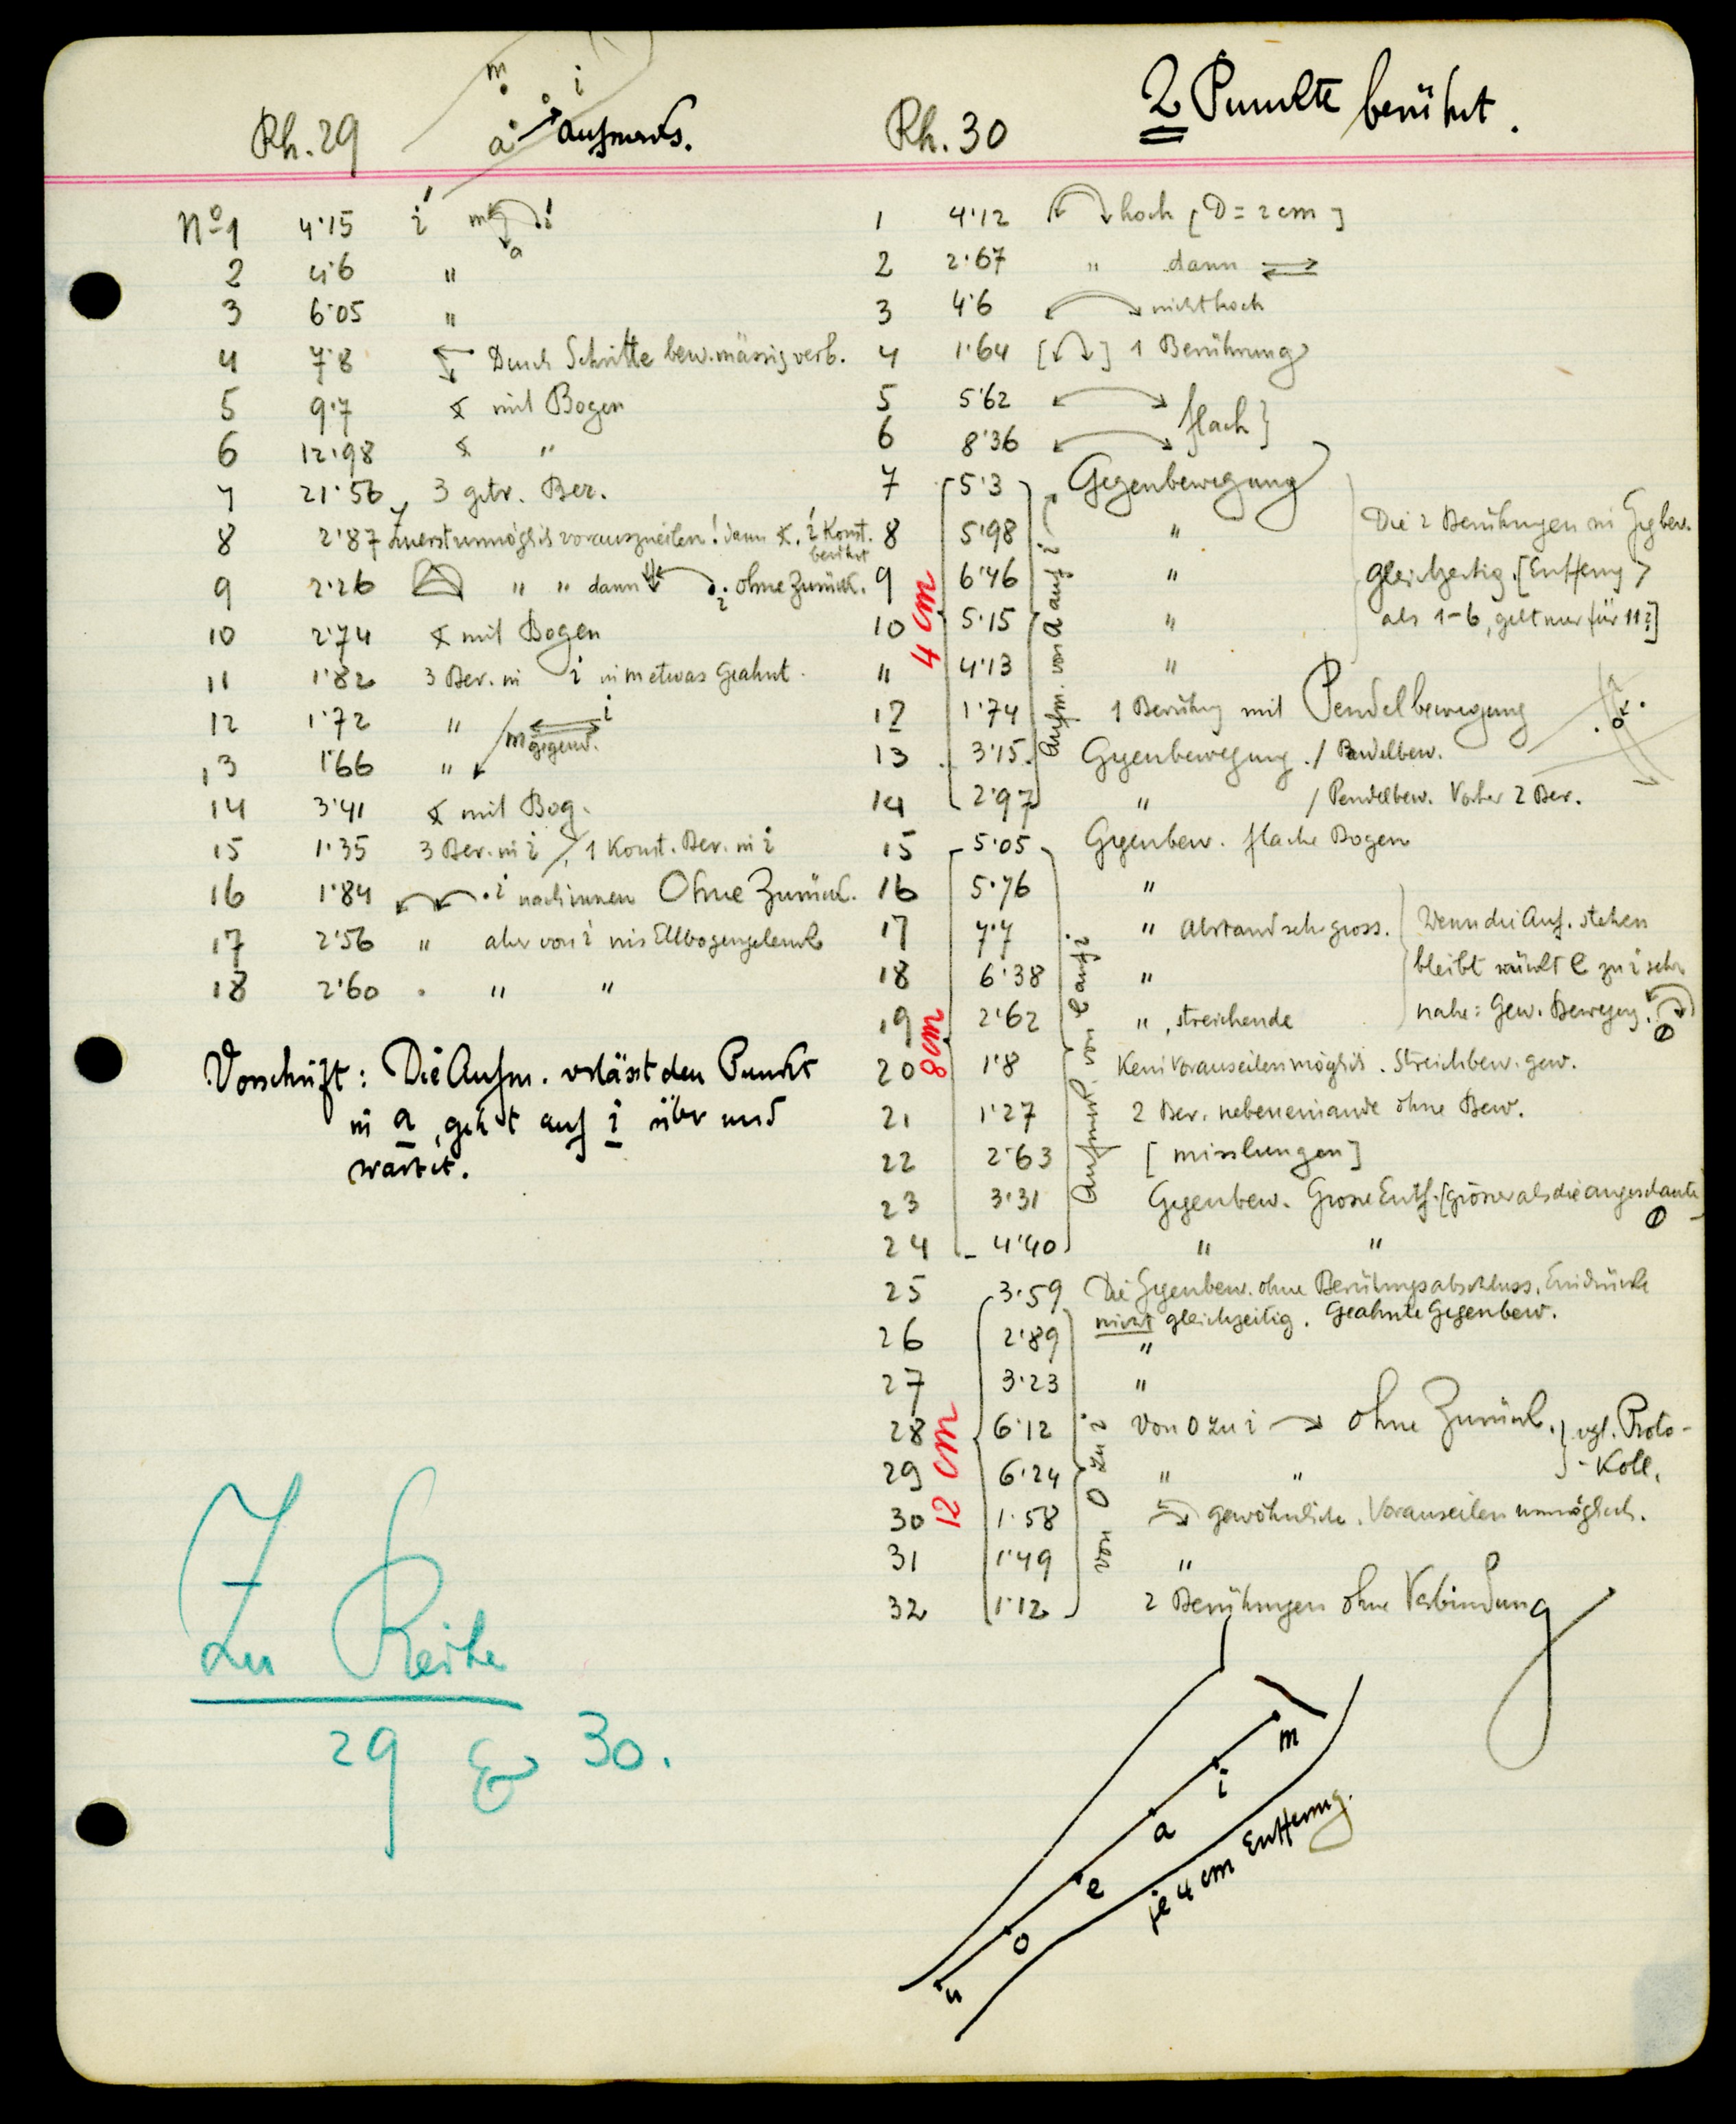 Rh. 29
m
i
a
aufmerks.
No 1 4·15 i m i a
2 4·6 "
3 6·05 "
4 7·8 Durch Schritte bew.mässig verb.
5 9·7 ∢ mit Bogen
6 12·98 ∢ "
7 21·56 3 getr. Ber.
8 2·87 Zuerst unmöglich vorauszueilen! dann ∢, i Konst. berührt
9 2·26 " " dann i ohne Zurück.
10 2·74 ∢ mit Bogen
11 1·82 3 Ber. in i in m etwas Geahnt.
12 1·72 " i
13 1·66 " m gegenw.
14 3·41 ∢ mit Bog.
15 1·35 3 Ber. in i / 1 Konst. Ber. in i
16 1·84 i nach innen Ohne Zurück.
17 2·56 " aber von i ins Ellbogengelenk
18 2·60 " "
Vorschrift: Die Aufm. verlässt den Punkt
in a, geht auf i über und
wartet.
Zu Reihe
29 & 30.
Rh. 30
2 Punkte berührt.
1 4·12 hoch [D = 2 cm]
2 2·67 " dann ⇄
3 4·6 nicht hoch
4 1·64 [ ] 1 Berührung
5 5·62 flach}
6 8·36
7 5·3 Gegenbewegung
8 5·98 "
9 6·46 "
10 5·15 "
11 4·13 "
12 1·74 1 Berührg mit Pendelbewegung
13 3·15 Gegenbewegung / Pendelbew.
14 2·97 " / Pendelbew. Vorher 2 Ber.
4 cm
Aufm. von a auf i
Die 2 Berührungen in Gegbew.
gleichzeitig. [Entferng >
als 1-6, gilt nur für 11?]
15 5·05 Gegenbew. flache Bogen
16 5·76 "
17 7·7 " Abstand sehr gross.
18 6·38 "
19 2·62 ", streichende
20 1·8 Kein Vorauseilen möglich. Streichbew. gew.
21 1·27 2 Ber. nebeneinander ohne Bew.
22 2·63 [misslungen]
23 3·31 Gegenbew. Grosse Entf. [grösser als die angeschaute]
24 4·40 " "
8 cm
Aufmerk. von e auf i
Wenn die Auf. stehen
bleibt rückt e zu i sehr
nahe: Gew. Bewegung.
25 3·59 Die Gegenbew. ohne Berührungsabschluss. Eindrücke
nicht gleichzeitig. Geahnte Gegenbew.
26 2·89 "
27 3·23 "
28 6·12 Von o zu i → ohne Zurück.
29 6·24 " "
vgl. Proto-
-Koll.
30 1·58 gewöhnliche. Vorauseilen unmöglich.
31 1·49 "
32 1·12 2 Berührungen ohne Verbindung
12 cm
von o zu i
m
i
a
e
o
u
je 4 cm Entferng.